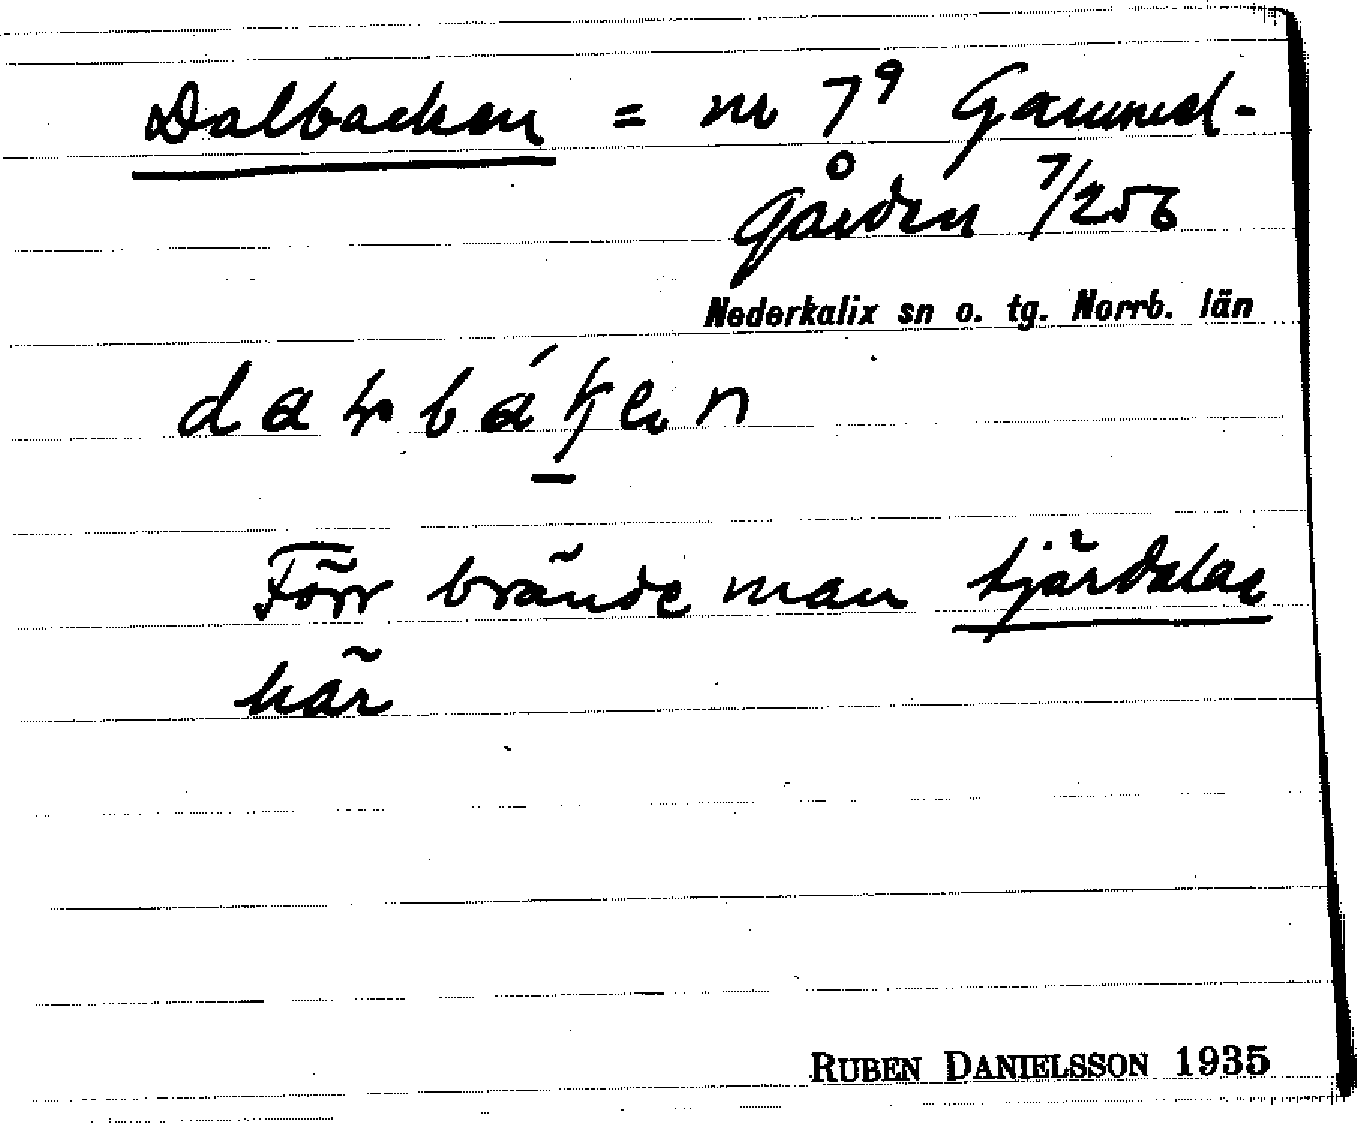 Dalbacken = nr 7⁹ Gammel-
gården 7/256
Nederkalix sn o. tg. Norrb. län
Förr brände man tjärdalar
här
RUBEN DANIELSSON 1935